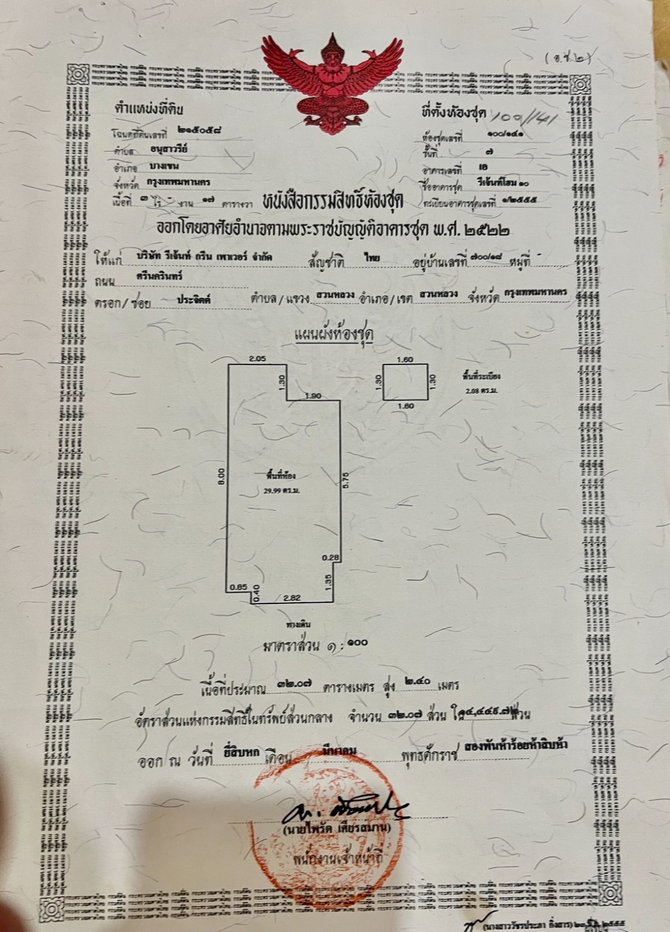 (อ.ช.๒)
ตำแหน่งที่ดิน
ที่ตั้งห้องชุด 100/141
โฉนดที่ดินเลขที่ ๒๑๕๐๕๘
ห้องชุดเลขที่ ๑๐๐/๑๔๑
ตำบล อนุสาวรีย์
ชั้นที่ ๗
อำเภอ บางเขน
อาคารเลขที่ เอ
จังหวัด กรุงเทพมหานคร
ชื่ออาคารชุด รีเจ้นท์โฮม ๑๐
เนื้อที่ ๓ ไร่ - งาน ๑๗ ตารางวา
ทะเบียนอาคารชุดเลขที่ ๑/๒๕๕๕
หนังสือกรรมสิทธิ์ห้องชุด
ออกโดยอาศัยอำนาจตามพระราชบัญญัติอาคารชุด พ.ศ. ๒๕๒๒
ให้แก่ บริษัท รีเจ้นท์ กรีน เพาเวอร์ จำกัด สัญชาติ ไทย อยู่บ้านเลขที่ ๗๐๐/๑๘ หมู่ที่ -
ถนน ศรีนครินทร์
ตรอก/ซอย ประจิตต์ ตำบล/แขวง สวนหลวง อำเภอ/เขต สวนหลวง จังหวัด กรุงเทพมหานคร
แผนผังห้องชุด
2.05
1.60
1.30
1.30
1.30
พื้นที่ระเบียง
2.08 ตร.ม.
1.90
1.60
8.00
พื้นที่ห้อง
29.99 ตร.ม.
5.75
0.28
0.85
0.40
2.82
1.35
ทางเดิน
มาตราส่วน ๑ : ๑๐๐
เนื้อที่ประมาณ ๓๒.๐๗ ตารางเมตร สูง ๒.๔๐ เมตร
อัตราส่วนแห่งกรรมสิทธิ์ในทรัพย์ส่วนกลาง จำนวน ๓๒.๐๗ ส่วน ใน ๑๔,๔๔๙.๗๒ ส่วน
ออก ณ วันที่ ยี่สิบหก เดือน มีนาคม พุทธศักราช สองพันห้าร้อยห้าสิบห้า
(นายไพรัต เตียรถมาน)
พนักงานเจ้าหน้าที่